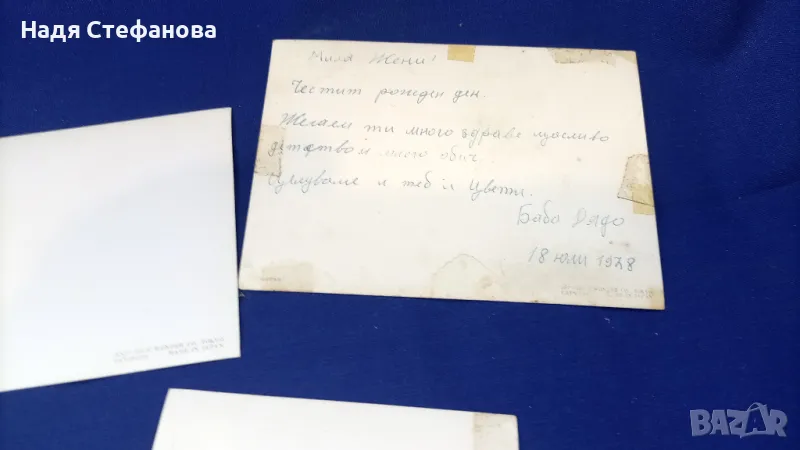 Надя Стефанова
Мила Жени!
Честит рожден ден.
Желаем ти много здраве щасливо
детство и много обич.
Целуваме и теб и Цвети.
Баба Дядо
18 юли 1978
BAZAR